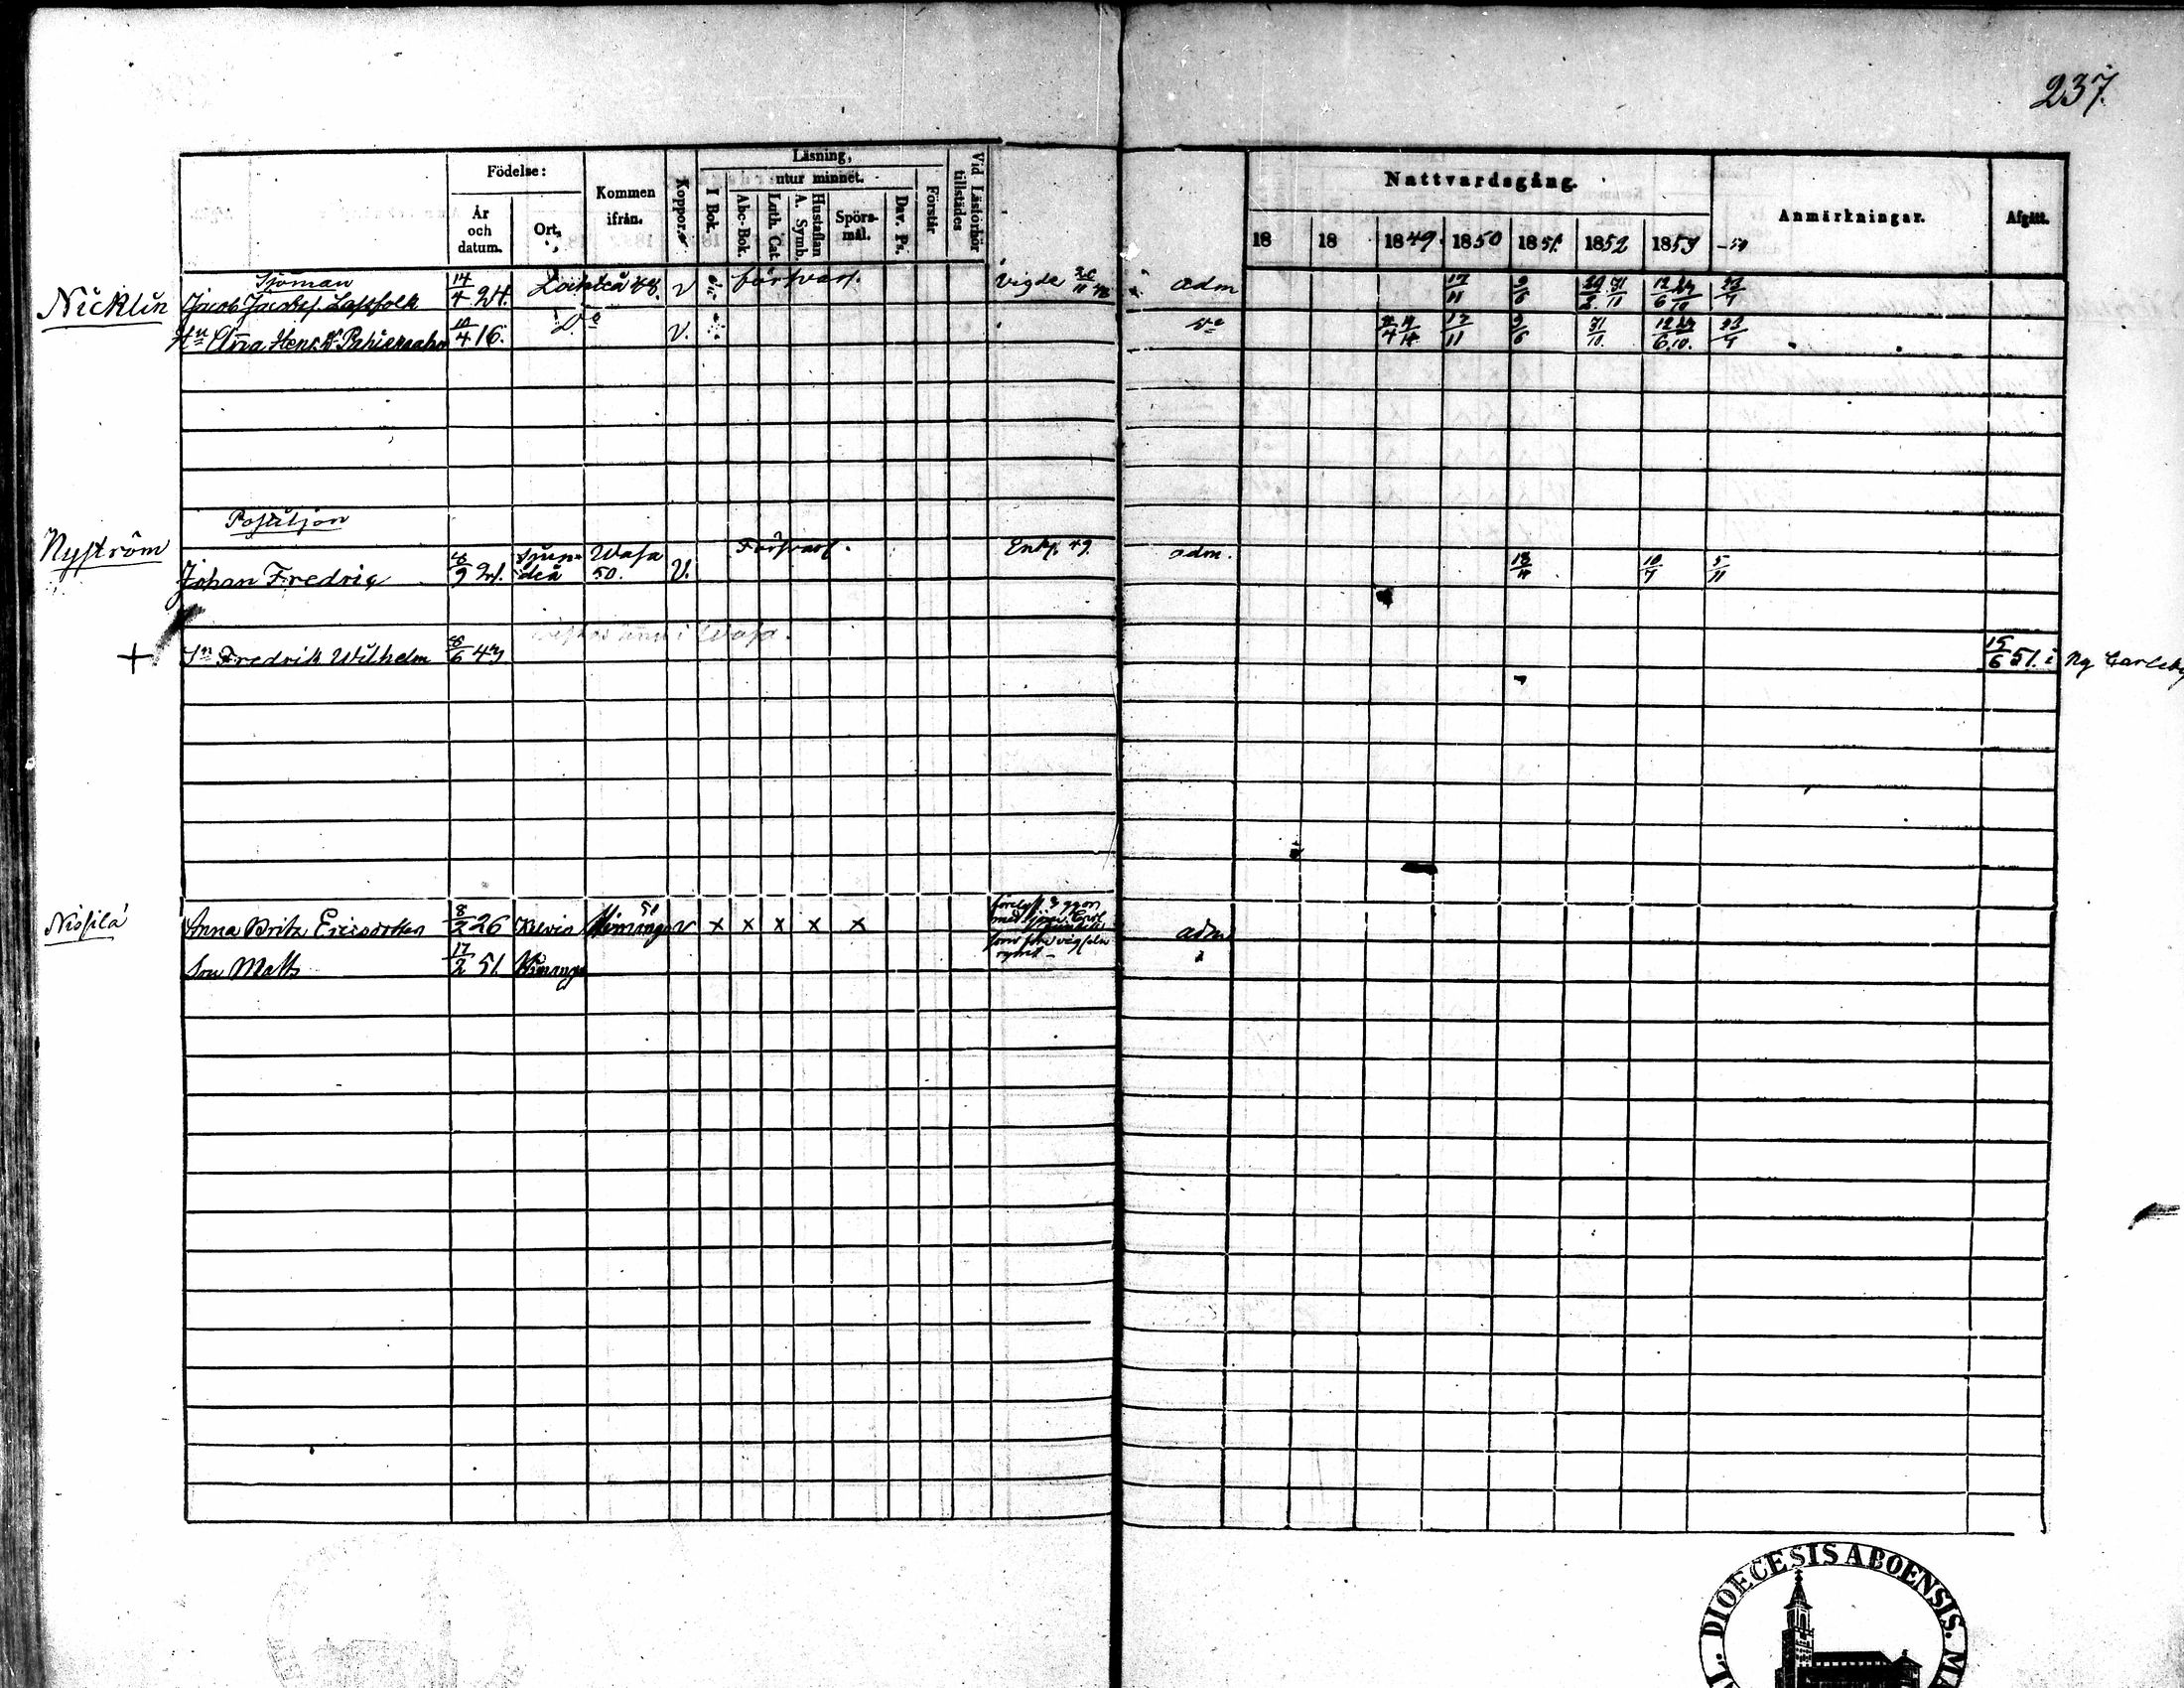 237.
Födelse:
År och datum.
Ort,
Kommen ifrån.
Koppor.
Läsning,
I Bok.
utur minnet.
Abc-Bok.
Luth. Cat.
Hustaflan A. Symb.
Spörs-mål.
Dav. Ps.
Förstår
Vid Läsförhör tillstädes
Nattvardsgång.
18 18 1849 1850 1851. 1852 1853 -54
Anmärkningar.
Afgått.
Nicklin
Sjöman
Jacob Jacobss. Lassfolk 14/4 24. Lochteå 48. v försvarl. Vigde adm 17/11 9/6 12/6 23/10
Hu Clara Henr.dr 10/4 16. Do v. do 17/11 9/6 31/10 12/6 23/10
Nyström
Postiljon
Johan Fredric 8/9 21. Wasa 50. v. Försvarl. Enkl. 49. adm. 10/7 5/11
i Wasa.
+ Sn Fredrik Wilhelm 8/6 43 15/6 51. i Ny Carleby
Nissilä
Anna Brita Ericsdotter 8/2 26 Kelviå Himango 51 v x x x x x adm
Son Matts 17/2 51. Himango
DIOECESIS ABOENSIS.